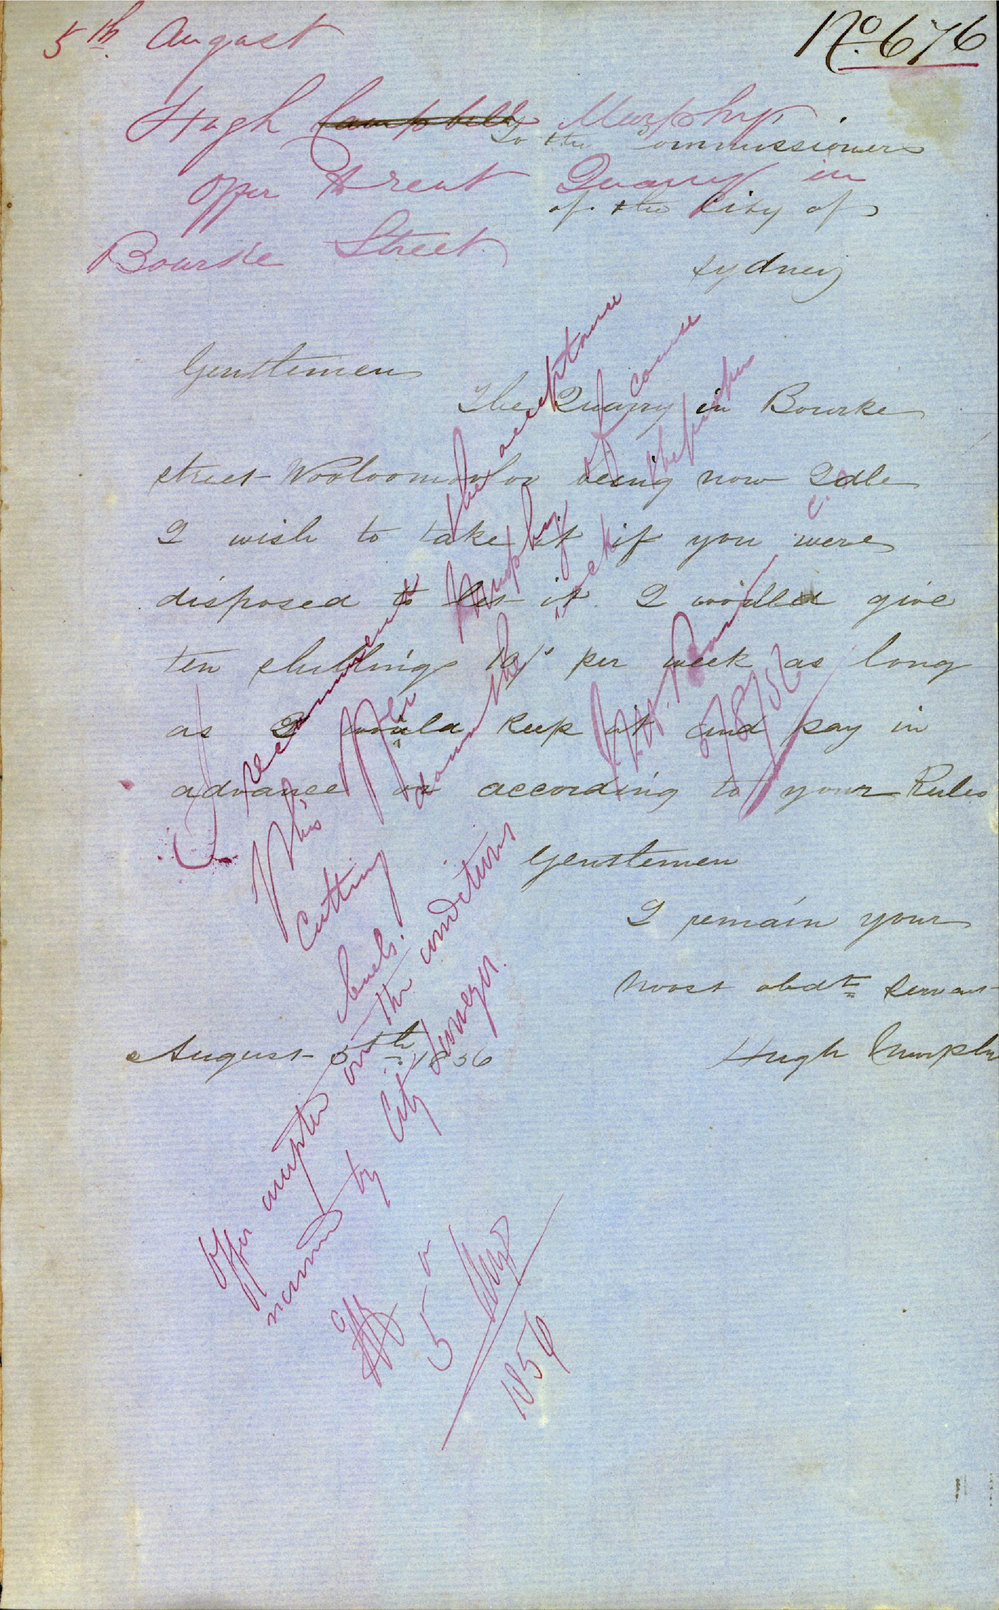 No. 676
5th. August
Hugh Campbell Murphy
offer to rent Quarry in
Bourke Street
To the Commissioners
of the City of
Sydney
Gentlemen
The Quarry in Bourke
street Wooloomooloo being now Idle
I wish to take it if you were
disposed to let it. I would give
ten shillings 10/- per week as long
as I would keep it and pay in
advance or according to your Rules
Gentlemen
I remain your
most obdt. Servant
Hugh Murphy
August 5th. 1856
I recommend the acceptance
this offer Murphy of course
Cutting down the rock to the proper
levels.
5/8/56
Offer accepted on the conditions
named by City Surveyor.
5 Aug
1856